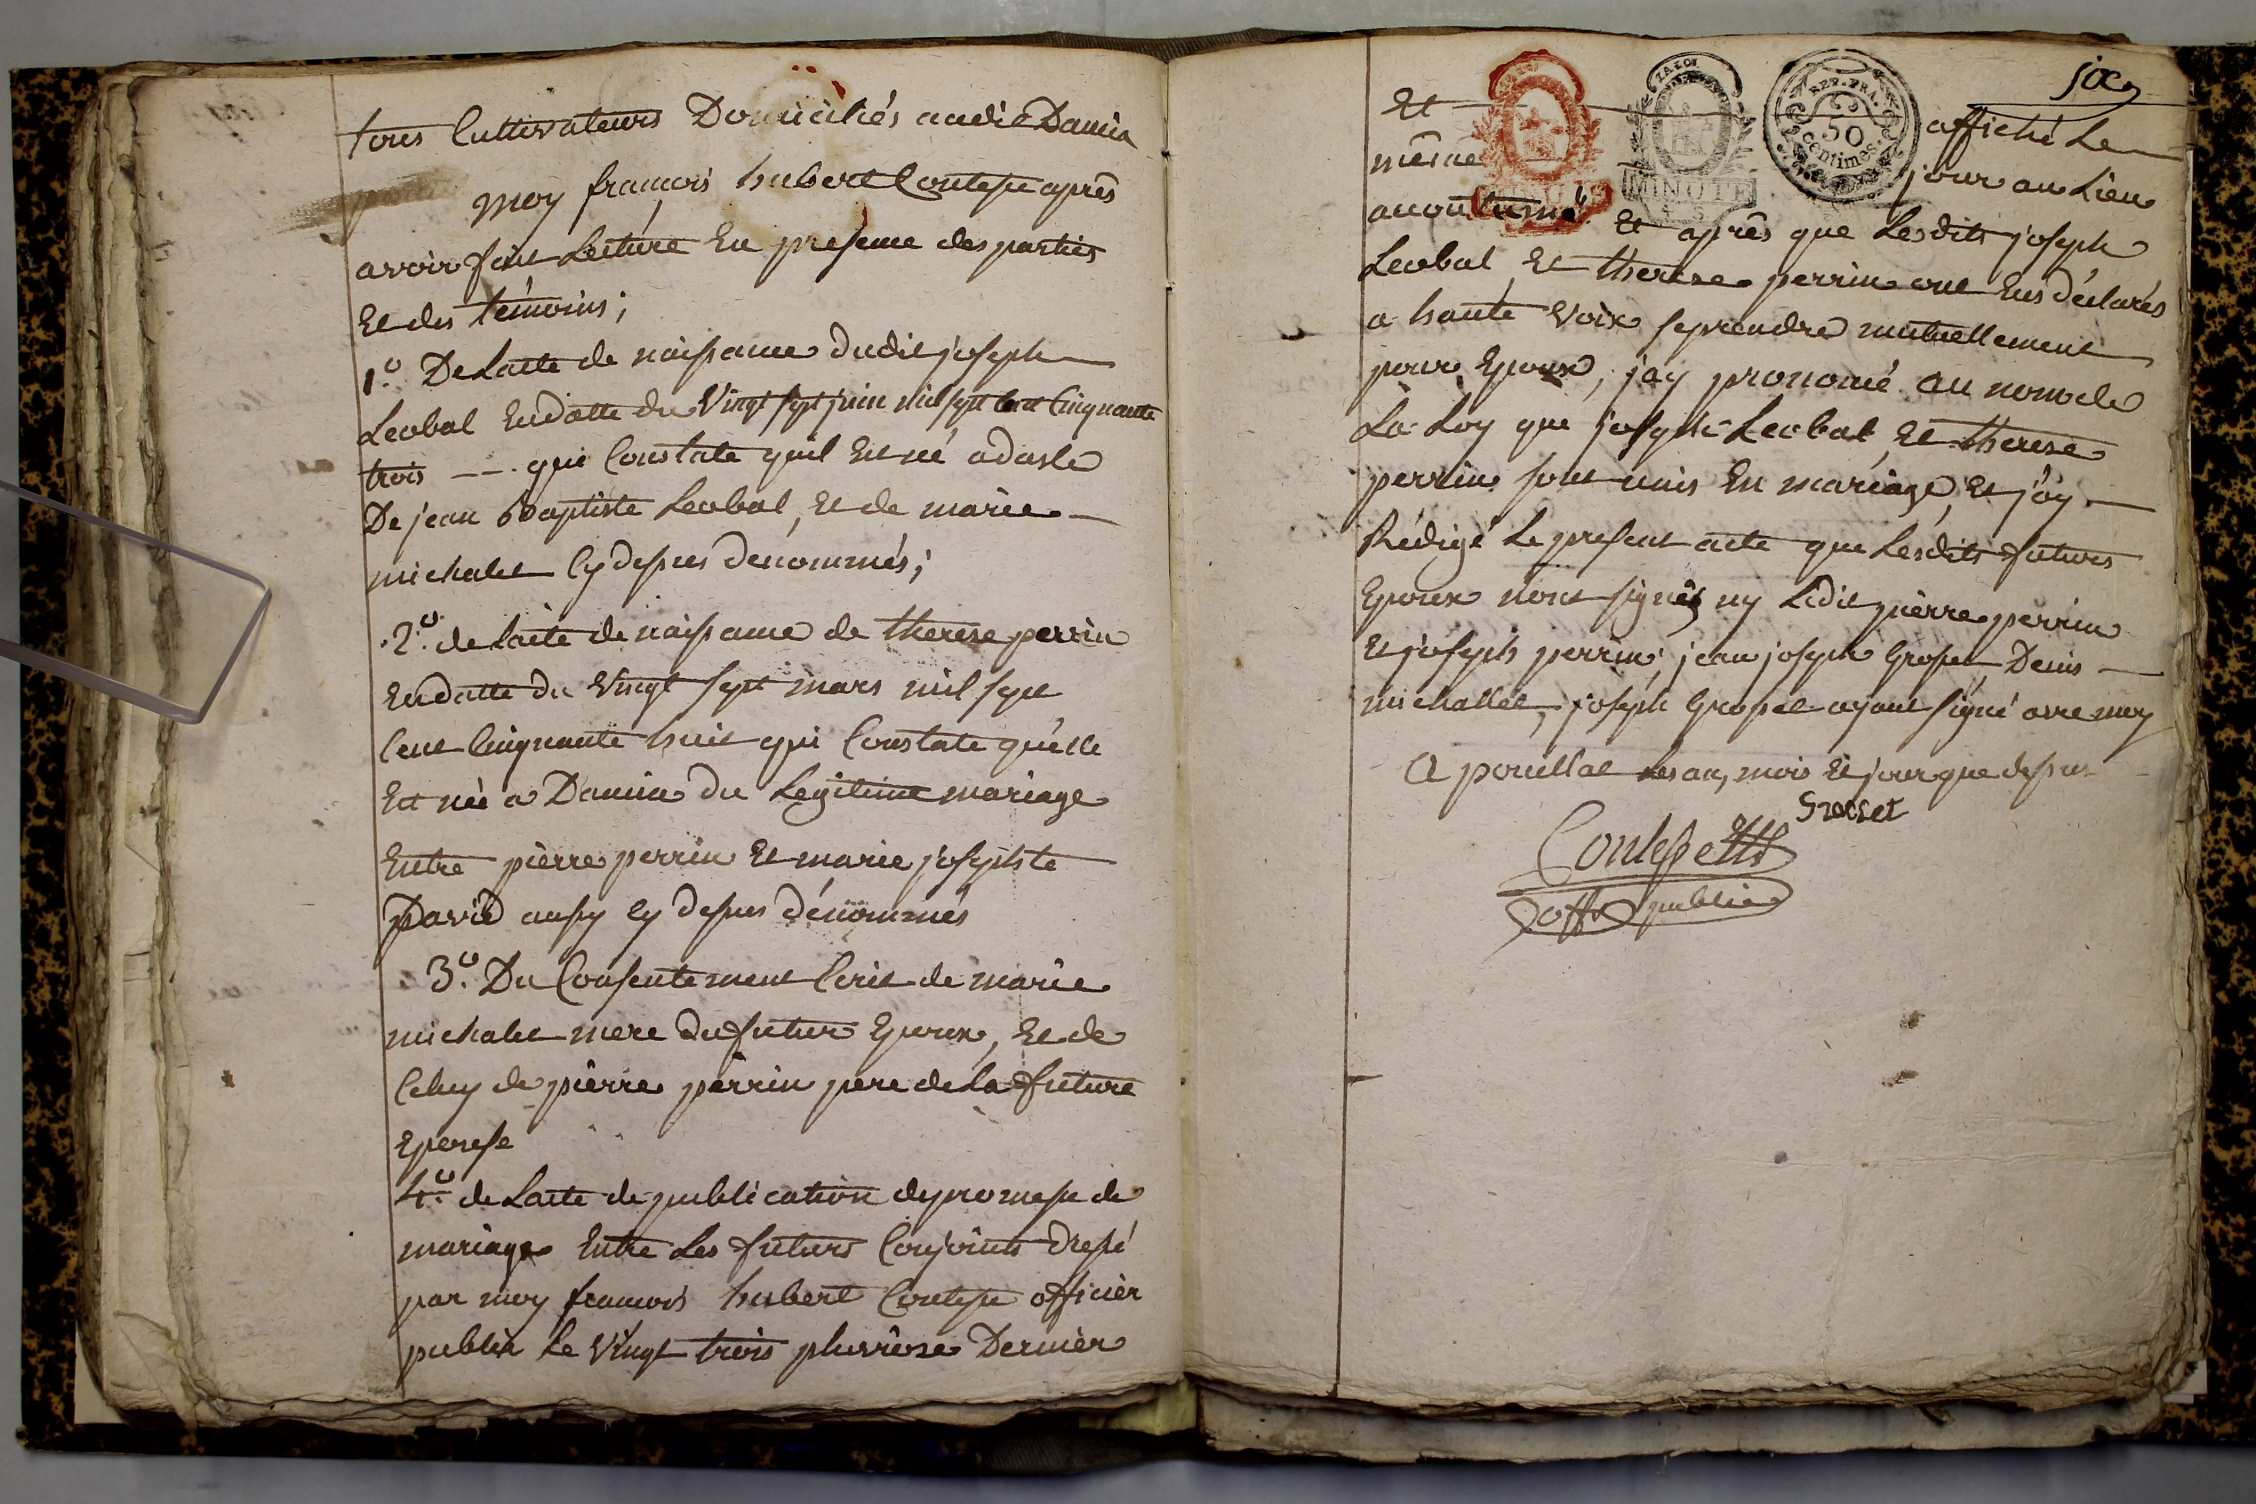 tous Cultivateurs Domiciliés audit Damia
moy françois hubert Contesse après
avoir fait Lecture En presence des parties
Et des témoins;
1.º De Lacte de naissance dudit joseph
Leobal Endatte du Vingt sept juin mil sept Cent Cinquante
trois -- qui Constate quil Est né a
De jean Baptiste Leobal, Et de marie
michalet Cy dessus denommés;
2.º de Lacte de naissance de therese perrin
Endatte du Vingt sept mars mil sept
Cent Cinquante huit qui Constate quelle
Est née a Damia du Legitime mariage
Entre pierre perrin Et marie josephte
David aussy Cy dessus dénommés
3.º Du Consentement Ecrit de marie
michalet mere du futur Epoux, Et de
Celuy de pierre perrin pere de La future
Epouse
4.º de Lacte de publication de promesse de
mariage Entre Les futurs Conjoints dressé
par moy françois hubert Contesse officier
public Le Vingt trois pluviôse Dernier
six
Et affiché Le
même jour au Lieu
accoutumé
REP. FRA.
50
Centimes.
MINUTE
Et après que Lesdits joseph
Leobal Et therese perrin ont Eus déclarés
a haute Voix se prendre mutuellement
pour Epoux, jay prononcé au nom de
La Loy que joseph Leobal Et therese
perrin sont unis En mariage, Et j'ay
Rédigé Le present acte que Lesdits futurs
Epoux n'ont signés ny Ledit pierre perrin
Et joseph perrin, jean joseph Grosset, Denis
michallet, joseph Grosset ayant signé avec moy
A pouillat Les an, mois Et jour que dessus
Grosset
Contesse
off. public